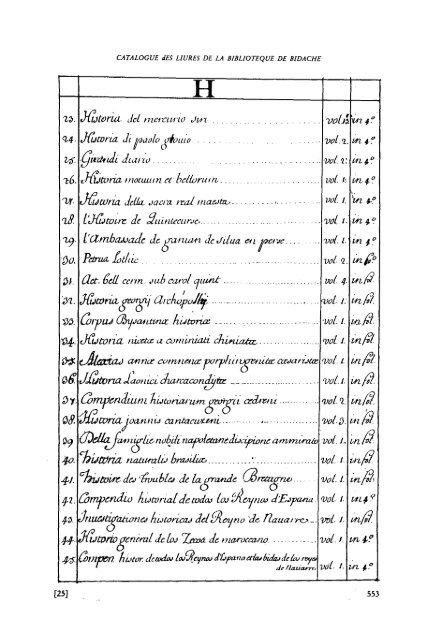 CATALOGUE dES LIURES DE LA BIBLIOTEQUE DE BIDACHE
H
23. Historia del mercurio siri vol. in 4.º
24. Historia di paolo giouio vol. 2. in 4.º
25. diario vol. 2. in 4.º
26. Historia motuum et bellorum vol. 1. in 4.º
27. Historia della sacra real maesta vol. 1. in 4.º
28. L'Histoire de Quintecurse vol. 1. in 4.º
29. L'Ambassade de de silua en perse vol. 1. in 4.º
30. Petrus Lotic vol. 2. in 8º
31. Act. bell germ. sub carol quint vol. 4. in fol.
32. Historia georgij Archopolitæ vol. 1. in fol.
33. Corpus Bysantinæ historiæ vol. 1. in fol.
34. Historia nicetæ a cominiati choniatæ vol. 1. in fol.
35. Alexias annæ comnenæ porphirogenitæ cæsarissæ vol. 1. in fol.
36. Historia Laonici chalcocondylæ vol. 1. in fol.
37. Compendium historiarum georgii cedreni vol. 2. in fol.
38. Historia joannis cantacuzeni vol. 3. in fol.
39. Della famiglie nobili napoletane di scipione ammirato vol. 1. in fol.
40. Historia naturalis brasiliæ vol. 1. in fol.
41. Histoire des troubles de la grande Bretagne vol. 1. in fol.
42. Compendio historial de todos los Reynos d'Espana vol. 1. in 4º
43. Inuestigationes historicas del Reyno de Nauarre vol. 1. in fol.
44. Historio general de los de maroccano vol. 1. in 4.º
45. Compen. histor. de todos los Reynos d'Espana et las bidas de los reyes
de Nauarre vol. 1. in 4.º
[25] 553